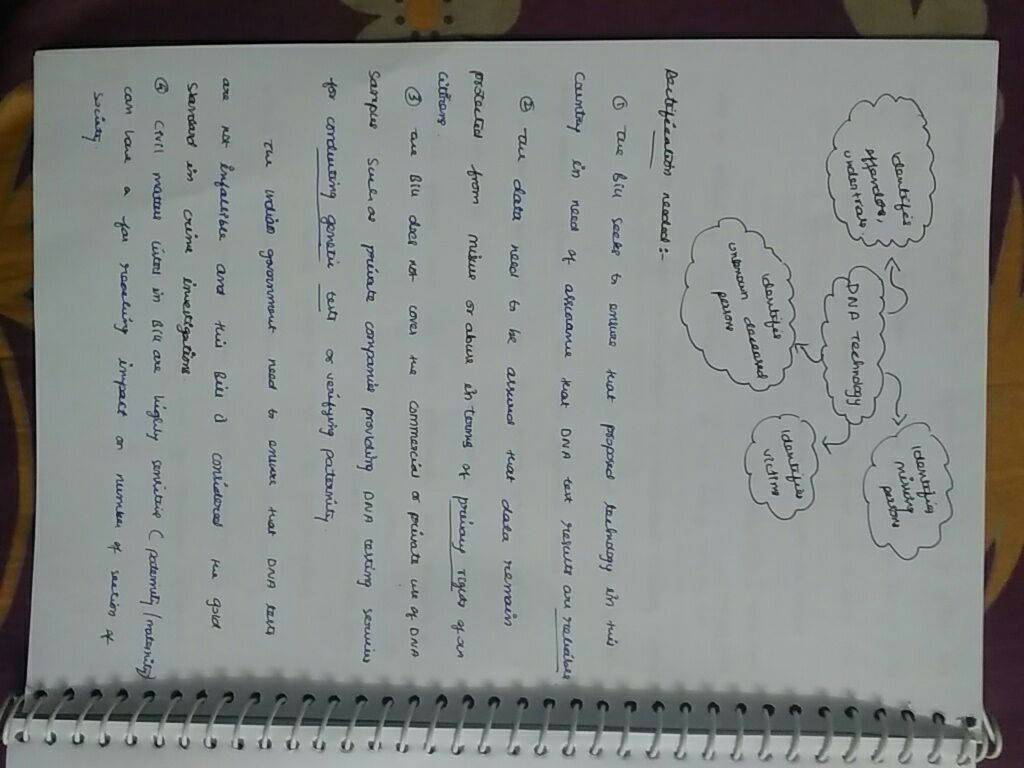 identifies
offenders,
undertrials
DNA Technology
identifies
missing
persons
identifies
unknown deceased
persons
identifies
victims
Rectification needed:-
① The Bill seeks to ensure that proposed technology in this
Country in need of assurance that DNA test results are reliable
② The data need to be assured that data remain
protected from misuse or abuse in terms of privacy rights of
citizens.
③ The Bill does not cover the commercial or private use of DNA
samples such as private companies providing DNA testing service
for conducting genetic tests or verifying paternity.
The indian government need to ensure that DNA tests
are not infallible and this Bill considered the gold
standard in crime investigations.
④ Civil matters listed in Bill are highly sensitive (paternity/maternity)
can have a far reaching impact on number of section of
society